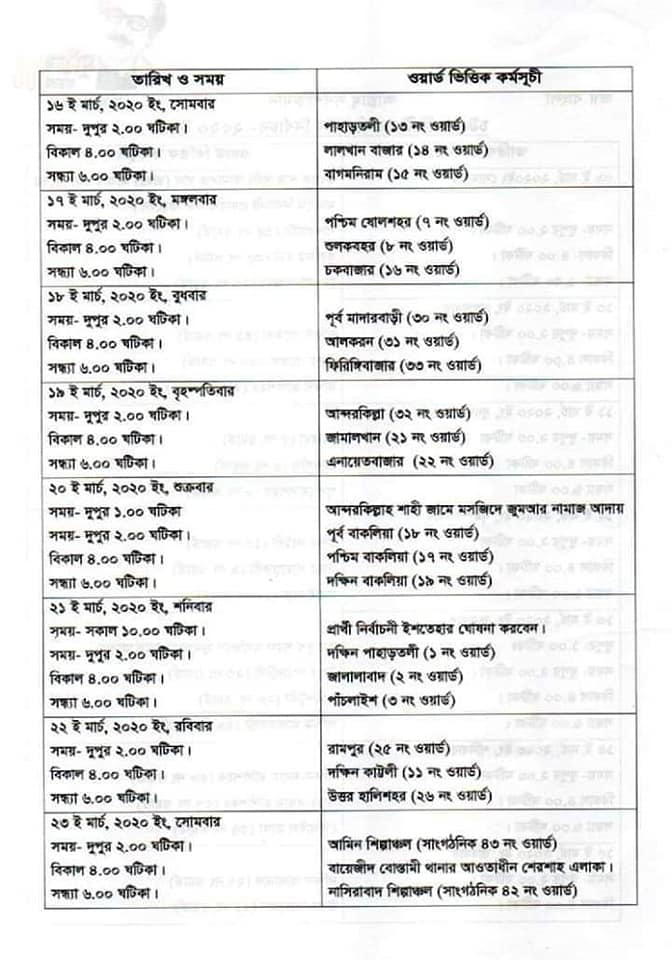 তারিখ ও সময় ওয়ার্ড ভিত্তিক কর্মসূচী
১৬ ই মার্চ, ২০২০ ইং, সোমবার
সময়- দুপুর ২.০০ ঘটিকা। পাহাড়তলী (১৩ নং ওয়ার্ড)
বিকাল ৪.০০ ঘটিকা। লালখান বাজার (১৪ নং ওয়ার্ড)
সন্ধ্যা ৬.০০ ঘটিকা। বাগমনিরাম (১৫ নং ওয়ার্ড)
১৭ ই মার্চ, ২০২০ ইং, মঙ্গলবার
সময়- দুপুর ২.০০ ঘটিকা। পশ্চিম ষোলশহর (৭ নং ওয়ার্ড)
বিকাল ৪.০০ ঘটিকা। শুলকবহর (৮ নং ওয়ার্ড)
সন্ধ্যা ৬.০০ ঘটিকা। চকবাজার (১৬ নং ওয়ার্ড)
১৮ ই মার্চ, ২০২০ ইং, বুধবার
সময়- দুপুর ২.০০ ঘটিকা। পূর্ব মাদারবাড়ী (৩০ নং ওয়ার্ড)
বিকাল ৪.০০ ঘটিকা। আলকরন (৩১ নং ওয়ার্ড)
সন্ধ্যা ৬.০০ ঘটিকা। ফিরিঙ্গিবাজার (৩৩ নং ওয়ার্ড)
১৯ ই মার্চ, ২০২০ ইং, বৃহষ্পতিবার
সময়- দুপুর ২.০০ ঘটিকা। আন্দরকিল্লা (৩২ নং ওয়ার্ড)
বিকাল ৪.০০ ঘটিকা। জামালখান (২১ নং ওয়ার্ড)
সন্ধ্যা ৬.০০ ঘটিকা। এনায়েতবাজার (২২ নং ওয়ার্ড)
২০ ই মার্চ, ২০২০ ইং, শুক্রবার
সময়- দুপুর ১.০০ ঘটিকা আন্দরকিল্লাহ শাহী জামে মসজিদে জুমআর নামাজ আদায়
সময়- দুপুর ২.০০ ঘটিকা। পূর্ব বাকলিয়া (১৮ নং ওয়ার্ড)
বিকাল ৪.০০ ঘটিকা। পশ্চিম বাকলিয়া (১৭ নং ওয়ার্ড)
সন্ধ্যা ৬.০০ ঘটিকা। দক্ষিন বাকলিয়া (১৯ নং ওয়ার্ড)
২১ ই মার্চ, ২০২০ ইং, শনিবার
সময়- সকাল ১০.০০ ঘটিকা। প্রার্থী নির্বাচনী ইশতেহার ঘোষনা করবেন।
সময়- দুপুর ২.০০ ঘটিকা। দক্ষিন পাহাড়তলী (১ নং ওয়ার্ড)
বিকাল ৪.০০ ঘটিকা। জালালাবাদ (২ নং ওয়ার্ড)
সন্ধ্যা ৬.০০ ঘটিকা। পাঁচলাইশ (৩ নং ওয়ার্ড)
২২ ই মার্চ, ২০২০ ইং, রবিবার
সময়- দুপুর ২.০০ ঘটিকা। রামপুর (২৫ নং ওয়ার্ড)
বিকাল ৪.০০ ঘটিকা। দক্ষিন কাট্টলী (১১ নং ওয়ার্ড)
সন্ধ্যা ৬.০০ ঘটিকা। উত্তর হালিশহর (২৬ নং ওয়ার্ড)
২৩ ই মার্চ, ২০২০ ইং, সোমবার
সময়- দুপুর ২.০০ ঘটিকা। আমিন শিল্পাঞ্চল (সাংগঠনিক ৪৩ নং ওয়ার্ড)
বিকাল ৪.০০ ঘটিকা। বায়েজীদ বোস্তামী থানার আওতাধীন শেরশাহ এলাকা।
সন্ধ্যা ৬.০০ ঘটিকা। নাসিরাবাদ শিল্পাঞ্চল (সাংগঠনিক ৪২ নং ওয়ার্ড)